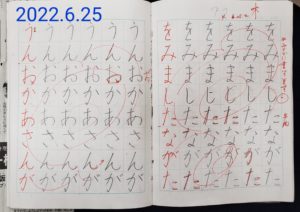 2022.6.25
をみましたながた
をみましたながた
をみましたながた
をみましたながた
をみましたながた
をみましたながた
うんおかあさんが
うんおかあさんが
うんおかあさんが
うんおかあさんが
うんおかあさんが
うんおかあさんが